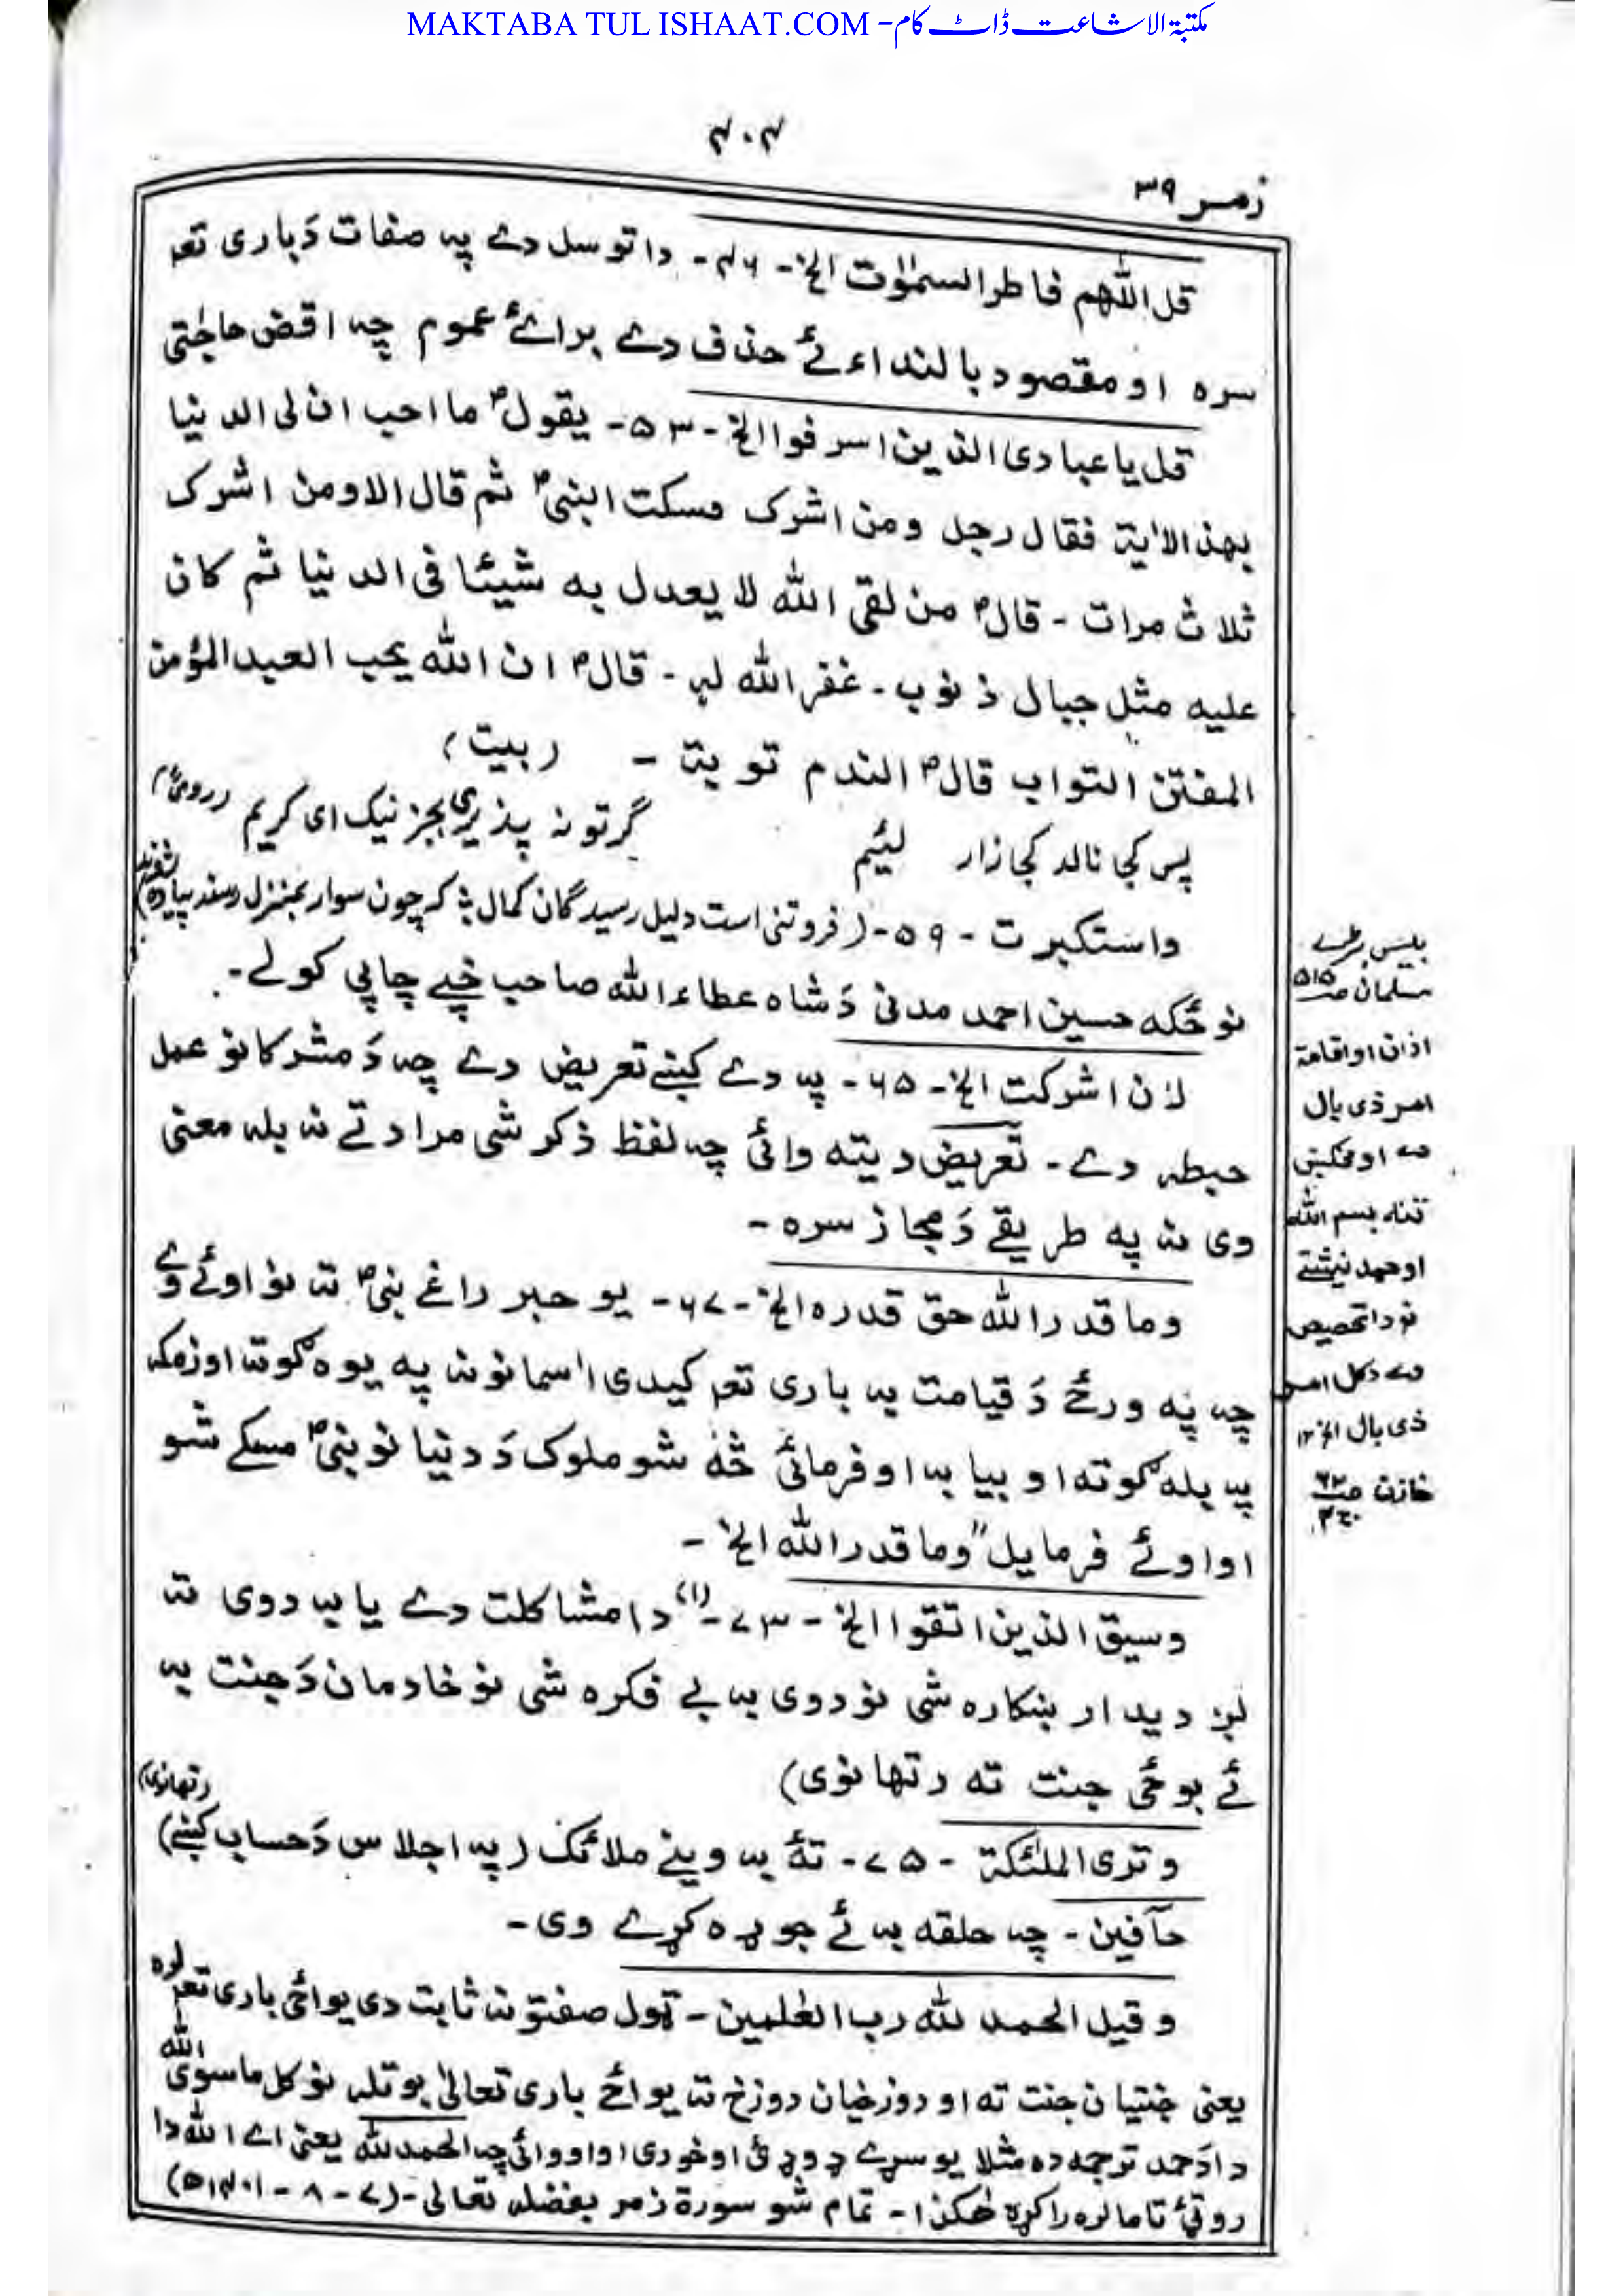 MAKTABA TUL ISHAAT.COM - مکتبۃ الاشاعت ڈاٹ کام
۴۰۴
زمر ۳۹
قل اللّٰهم فاطر السمٰوٰت الخ - ۴۶ - دا توسل دے پہ صفات دَ باری تعہ
سرہ او مقصود بالنداء ئے حذف دے براۓ عموم چہ اقض حاجتی
قل یا عبادی الذین اسرفوا الخ - ۵۳ - یقول ؐ ما احب ان لی الدنیا
بهذه الاٰیة فقال رجل ومن اشرک فسکت النبی ؐ ثم قال الا ومن اشرک
ثلاث مرات - قال ؐ من لقی الله لا یعدل به شیئا فی الدنیا ثم کان
علیه مثل جبال ذنوب - غفر الله له - قال ؐ ان الله یحب العبد المؤمن
المفتن التواب قال ؐ الندم توبة - (بیت)
گر تو نہ پذیری بجز نیک ای کریم (رومیؒ)
پس کجا نالد کجا زار لئیم
واستکبرت - ۵۹ - (فروتنی است دلیل رسیدگان کمال پہ کہ چون سوار بمنزل رسد پیادہ
نو ځکہ حسین احمد مدنی دَ شاہ عطاء الله صاحب خپے چاپی کولے -
لان اشرکت الخ - ۶۵ - پہ دے کښے تعریض دے چہ دَ مشرکانو عمل
حبطہ دے - تعریض دیتہ وائی چہ لفظ ذکر شی مراد تے نہ بلہ معنی
وی نہ پہ طریقے دَ مجاز سرہ -
وما قدر الله حق قدره الخ - ۶۷ - یو حبر راغے نبی ؐ تہ نو اوئے وے
چہ پہ ورځ دَ قیامت بہ باری تعہ کیدی اٰسمانونہ پہ یوہ ګوتہ او زمکہ
پہ بلہ ګوتہ او بیا بہ اوفرمائی څہ شو ملوک دَ دنیا نو نبی ؐ مسکے شو
او اوئے فرمایل "وما قدر الله الخ -
وسیق الذین اتقوا الخ - ۷۳ - (۱) دا مشاکلت دے یا بہ دوی تہ
لږ دیدار ښکارہ شی نو دوی بہ بے فکرہ شی نو خادمان دَ جنت بہ
ئے بوځی جنت تہ (تھانوی)
(تھانوی)
وتری الملٰئکة - ۷۵ - تۂ بہ وینے ملائک (پہ اجلاس دَ حساب کښے)
حآفین - چہ حلقہ بہ ئے جوړہ کړے وی -
وقیل الحمد لله رب العٰلمین - ټول صفتونہ ثابت دی یواځی باری تعہ لرہ
یعنی جنتیان جنت تہ او دوزخیان دوزخ تہ یواځے باری تعالیٰ بوتلہ نو کل ماسوی الله
دا دَ حمد ترجمہ دہ مثلا یو سړے ډوډئ اوخوری او اووائی چہ الحمد لله یعنی اے الله دا
روټئ تا ما لرہ راکړہ ھٰکذا - تمام شو سورة زمر بفضلہ تعالی - (۷ - ۸ - ۱۴۰۱ھ)
مسلمان صـ ۵۱۵
اذان او اقامة
امر ذی بال
دے او مخکښے
تنہ بسم الله
او حمد نیشتے
نو دا تخصیص
دے دکل امر
ذی بال الخ ۱۲
خازن صـ